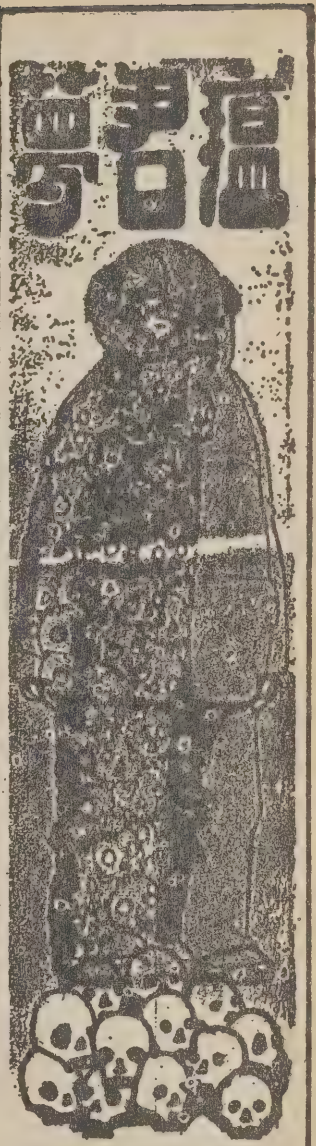 瘟君夢